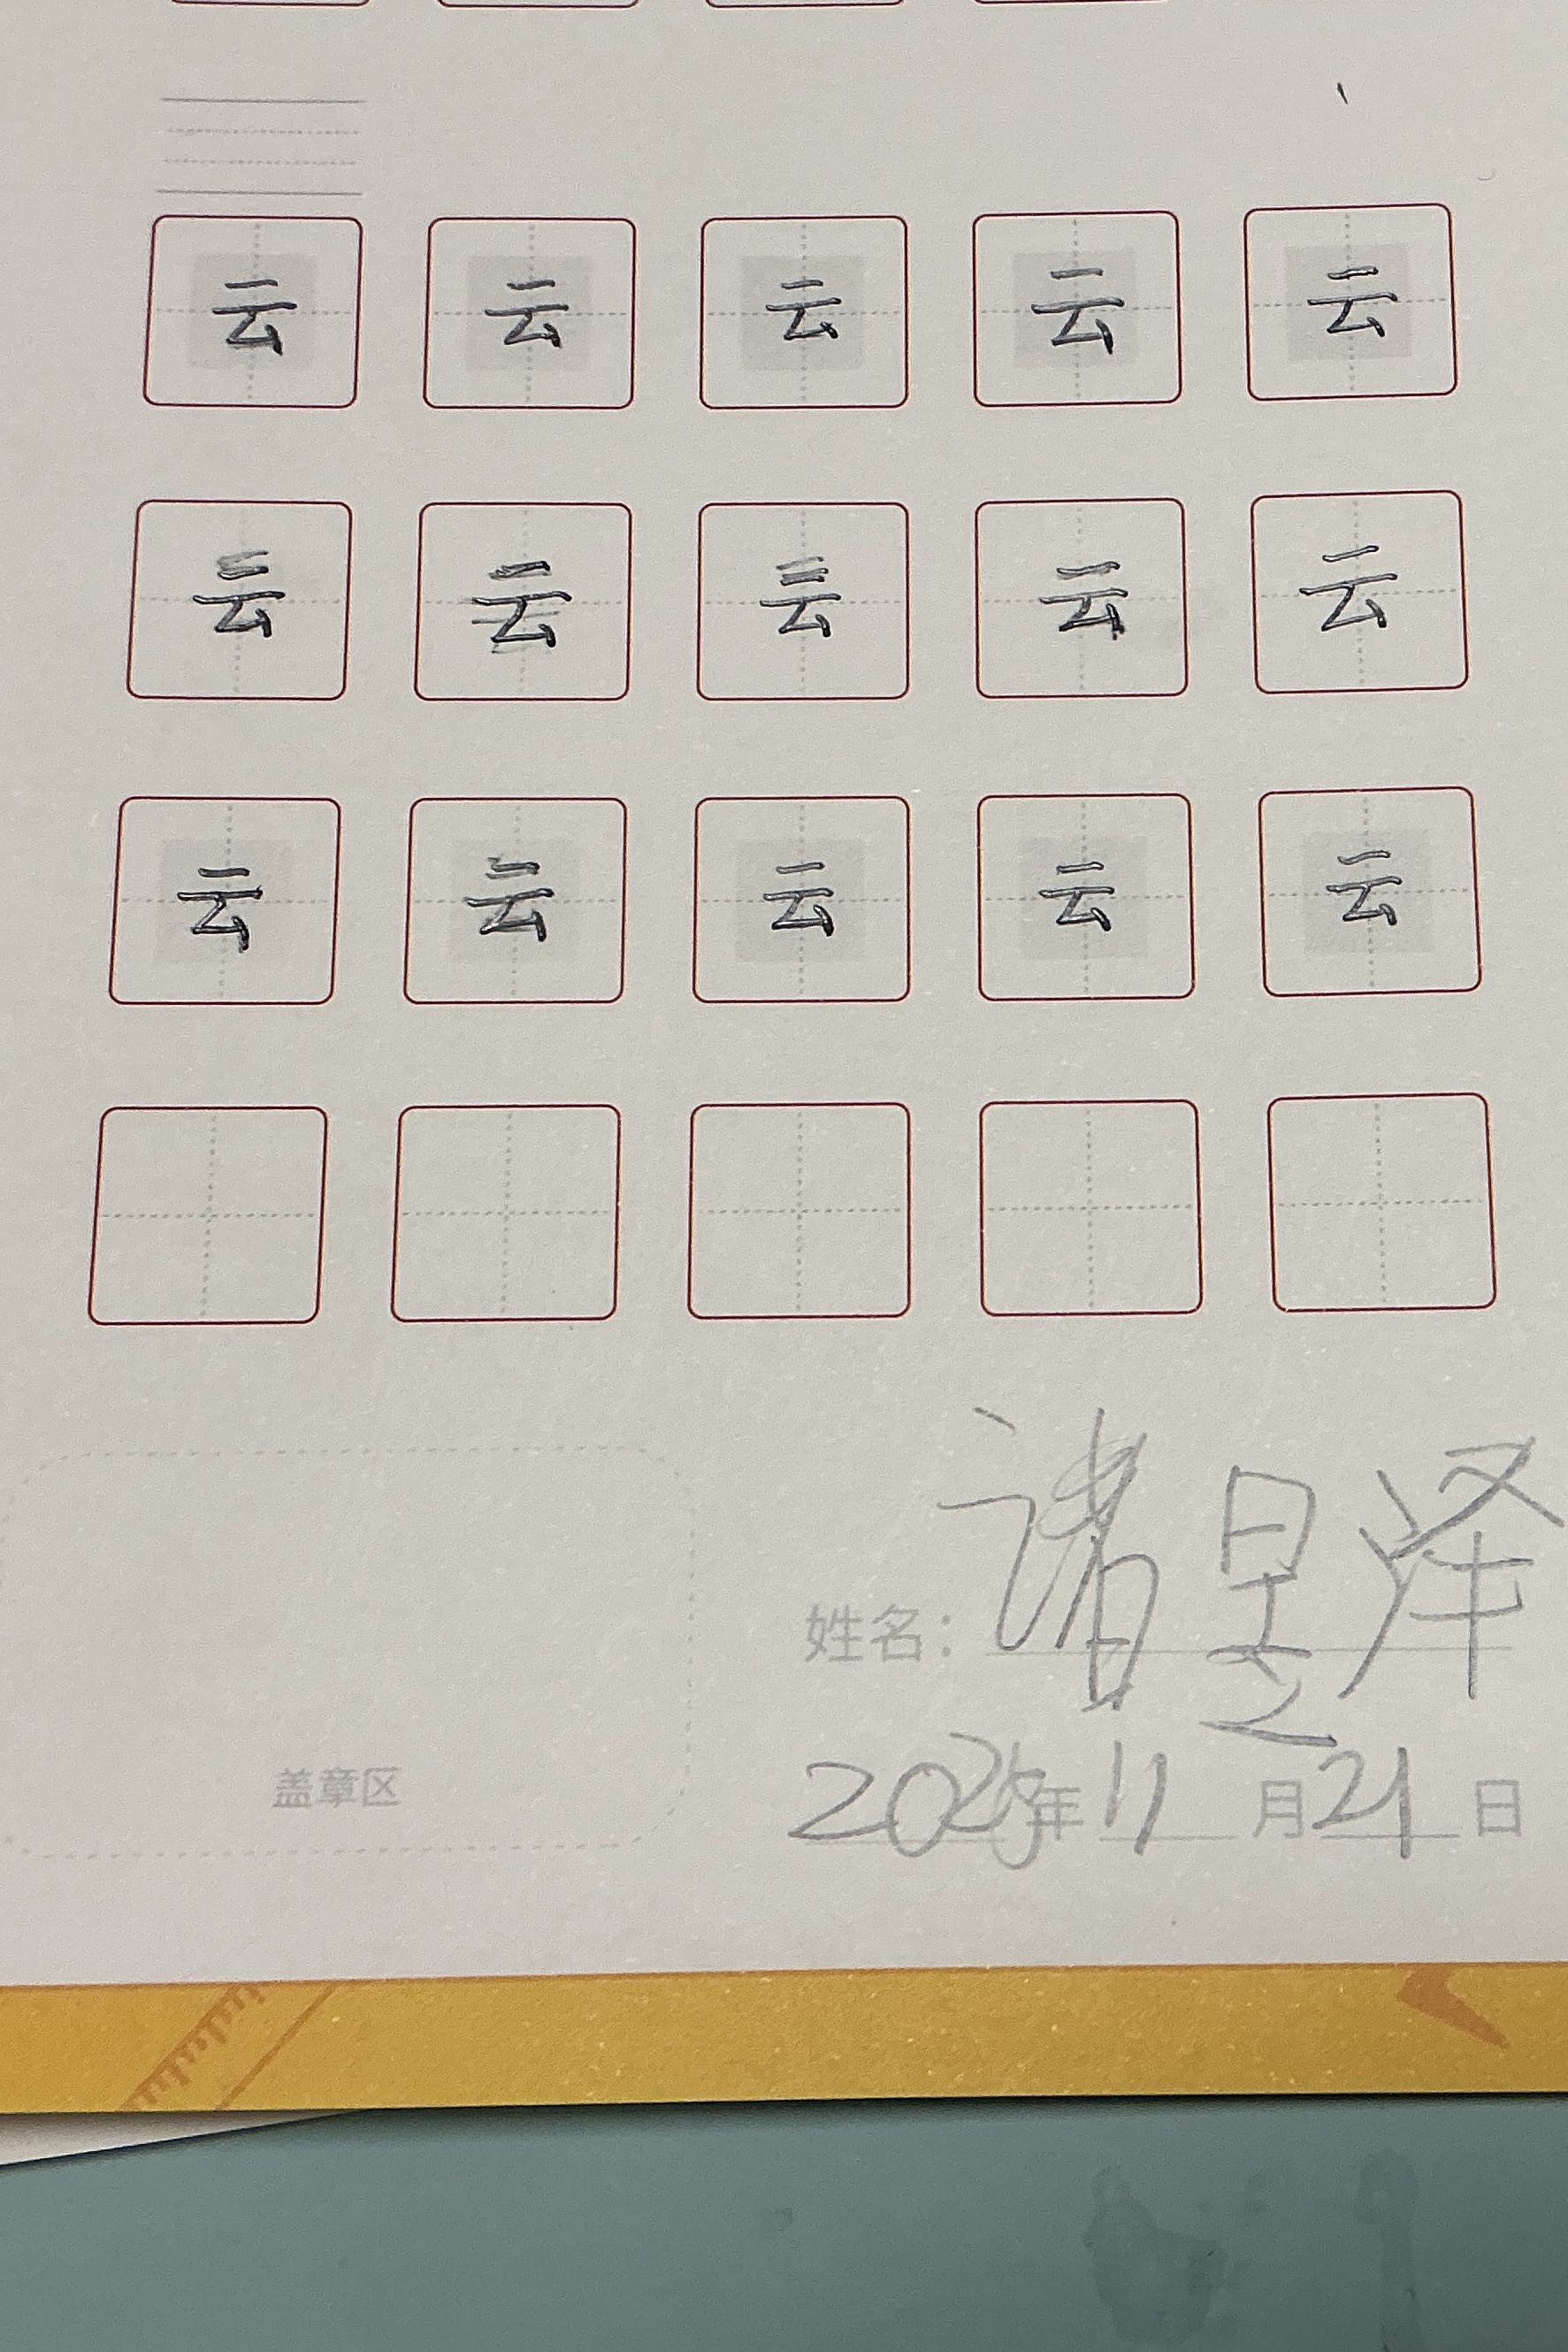 云 云 云 云 云
云 云 云 云 云
云 云 云 云 云
姓名：诸 泽
盖章区
2025年11月21日